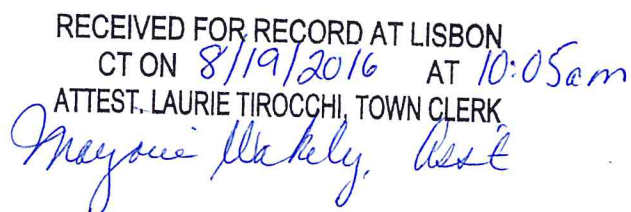 RECEIVED FOR RECORD AT LISBON
CT ON 8/19/2016 AT 10:05am
ATTEST. LAURIE TIROCCHI, TOWN CLERK
Marjorie Wakely, Asst